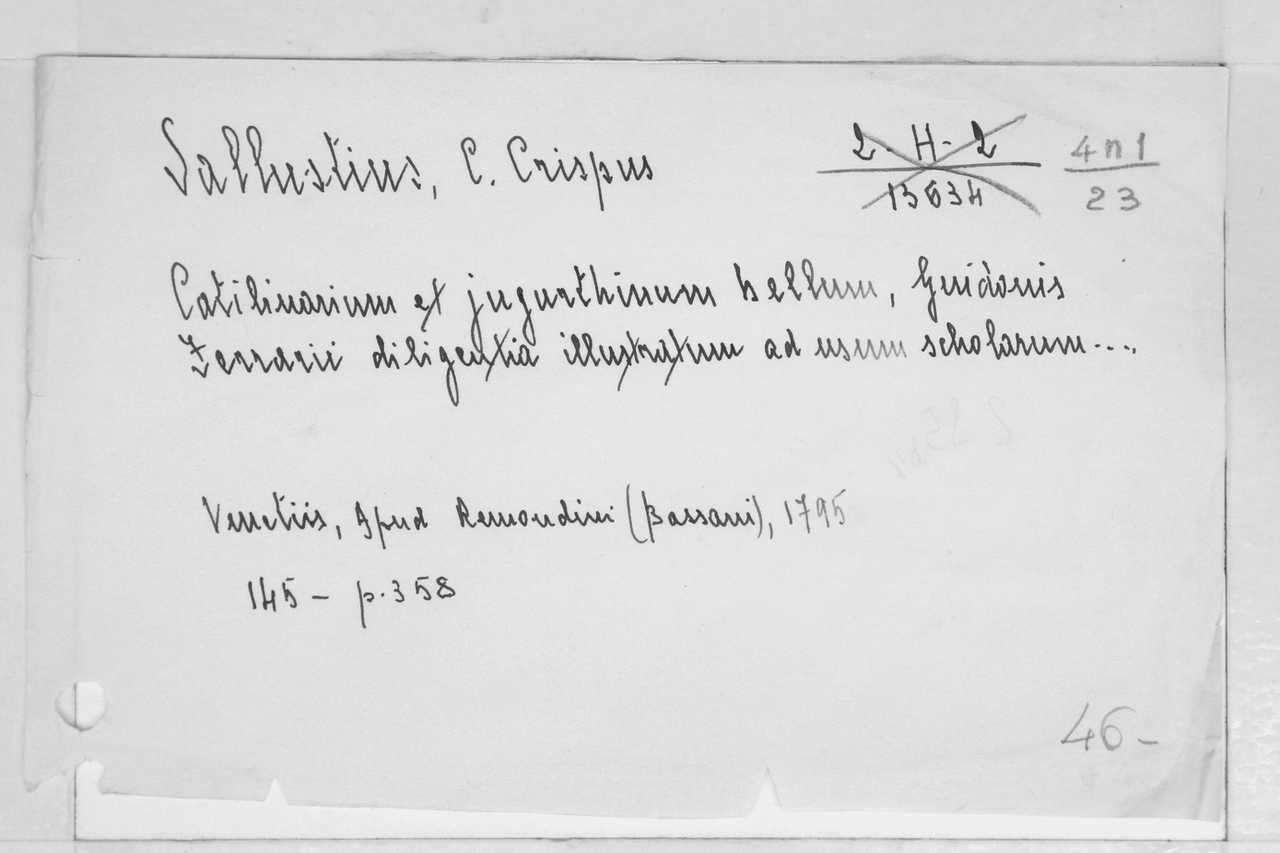 Sallustius, C. Crispus
2 - H - 2
13634
4 n 1
23
Catilinarium et jugurthinum bellum, Guidonis
Ferrarii diligentia illustratum ad usum scholarum...
Venetiis, Apud Remondini (Bassani), 1795
145 - p. 358
46 -